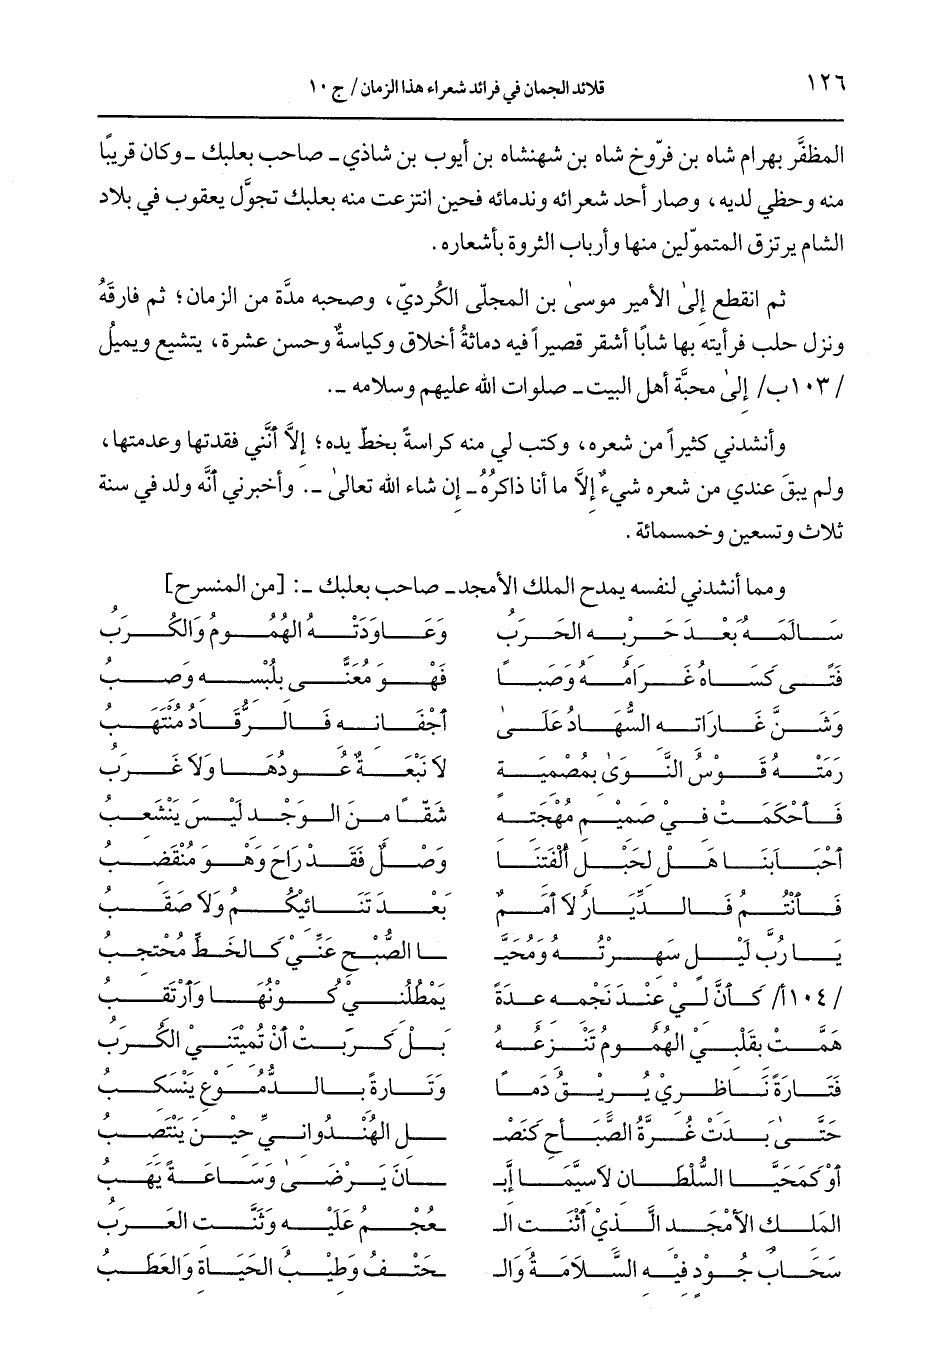 ١٢٦ قلائد الجمان في فرائد شعراء هذا الزمان/ ج ١٠
المظفَّر بهرام شاه بن فرّوخ شاه بن شهنشاه بن أيوب بن شاذي ـ صاحب بعلبك ـ وكان قريبًا
منه وحظي لديه، وصار أحد شعرائه وندمائه فحين انتزعت منه بعلبك تجوَّل يعقوب في بلاد
الشام يرتزق المتموّلين منها وأرباب الثروة بأشعاره.
ثم انقطع إلىٰ الأمير موسىٰ بن المجلّى الكُرديّ، وصحبه مدَّة من الزمان؛ ثم فارقَهُ
ونزل حلب فرأيته بها شابًا أشقر قصيراً فيه دماثةُ أخلاق وكياسةٌ وحسن عشرة، يتشيع ويميلُ
/١٠٣ب/ إلىٰ محبَّة أهل البيت ـ صلوات الله عليهم وسلامه ـ.
وأنشدني كثيراً من شعره، وكتب لي منه كراسةً بخطّ يده؛ إلاَّ أنَّني فقدتها وعدمتها،
ولم يبقَ عندي من شعره شيءٌ إلاَّ ما أنا ذاكرُهُ ـ إن شاء الله تعالىٰ ـ. وأخبرني أنَّه ولد في سنة
ثلاث وتسعين وخمسمائة.
ومما أنشدني لنفسه يمدح الملك الأمجد ـ صاحب بعلبك ـ: [من المنسرح]
سَالَمَهُ بَعْدَ حَرْبِهِ الحَرَبُ وَعَاوَدَتْهُ الهُمُومُ وَالكُرَبُ
فَتًى كَسَاهُ غَرَامُهُ وَصَبًا فَهْوَ مُعَنًّى بِلُبْسِهِ وَصِبُ
وَشَنَّ غَارَاتِهِ السُّهَادُ عَلَىٰ أجْفَانِهِ فَالرُّقَادُ مُنْتَهَبُ
رَمَتْهُ قَوْسُ النَّوَىٰ بِمُصْمِيَةٍ لاَ نَبْعَةٌ عُودُهَا وَلاَ غَرَبُ
فَأحْكَمَتْ فِي صَمِيمِ مُهْجَتِهِ شَقًّا مِنَ الوَجْدِ لَيْسَ يَنْشَعِبُ
أحْبَابَنَا هَلْ لِحَبْلِ ألْفَتِنَا وَصْلٌ فَقَدْ رَاحَ وَهْوَ مُنْقَضِبُ
فَأنْتُمُ فَالدِّيَارُ لاَ أمَمٌ بَعْدَ تَنَائِيكُمُ وَلاَ صَقَبُ
يَا رُبَّ لَيْلٍ سَهِرْتُهُ وَمُحَيَّـ ـا الصُّبْحِ عَنِّيْ كَالخَطِّ مُحْتَجِبُ
/١٠٤أ/ كَأنَّ لِيْ عِنْدَ نَجْمِهِ عِدَةً يَمْطُلُنِيْ كَوْنُهَا وَأرْتَقِبُ
هَمَّتْ بِقَلْبِيْ الهُمُومُ تَنْزِعُهُ بَلْ كَرَبَتْ أنْ تُمِيْتَنِيْ الكُرَبُ
فَتَارَةً نَاظِرِيْ يُرِيْقُ دَمًا وَتَارَةً بِالدُّمُوعِ يَنْسَكِبُ
حَتَّىٰ بَدَتْ غُرَّةُ الصَّبَاحِ كَنَصْـ ـلِ الهُنْدُوانِيِّ حِيْنَ يَنْتَصِبُ
أوْ كَمُحَيَّا السُّلْطَانِ لاَ سِيَّمَا إبَّـ ـانَ يَرْضَىٰ وَسَاعَةً يَهَبُ
المَلِكِ الأمْجَدِ الَّذِيْ أثْنَتِ الـ ـعُجْمُ عَلَيْهِ وَثَنَّتِ العَرَبُ
سَحَابُ جُوْدٍ فِيْهِ السَّلاَمَةُ وَالـ ـحَتْفُ وَطِيْبُ الحَيَاةِ وَالعَطَبُ